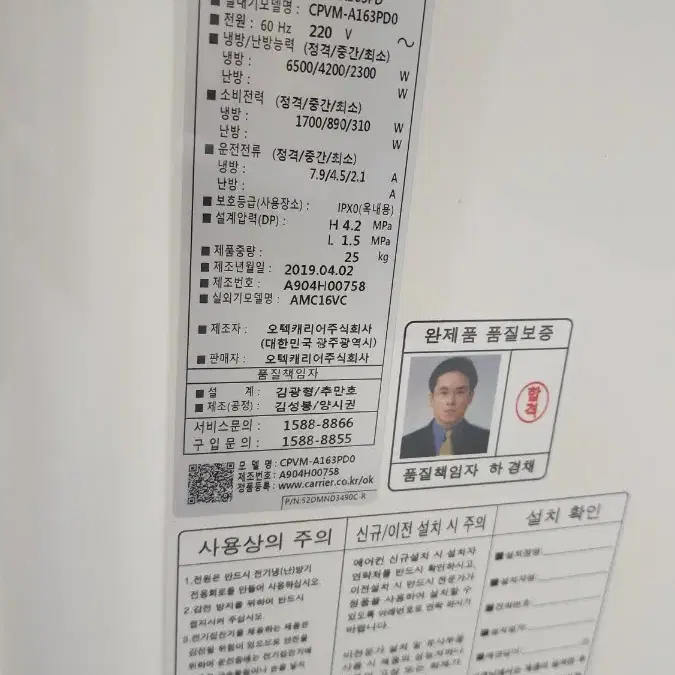 실내기모델명 : CPVM-A163PD0
■ 전원 : 60 Hz 220 V ~
■ 냉방/난방능력 (정격/중간/최소)
냉방 : 6500/4200/2300 W
난방 : W
■ 소비전력 (정격/중간/최소)
냉방 : 1700/890/310 W
난방 : W
■ 운전전류 (정격/중간/최소)
냉방 : 7.9/4.5/2.1 A
난방 : A
■ 보호등급(사용장소) : IPX0(옥내용)
■ 설계압력(DP) : H 4.2 MPa
L 1.5 MPa
■ 제품중량 : 25 kg
■ 제조년월일 : 2019.04.02
■ 제조번호 : A904H00758
■ 실외기모델명 : AMC16VC
■ 제조자 : 오텍캐리어주식회사
(대한민국 광주광역시)
■ 판매자 : 오텍캐리어주식회사
품질책임자
■ 설 계 : 김광형/추만호
■ 제조(공정) : 김성봉/양시권
서비스문의 : 1588-8866
구입문의 : 1588-8855
모델명 : CPVM-A163PD0
제조번호 : A904H00758
정품등록 : www.carrier.co.kr/ok
P/N:52DMND3490C-R
완제품 품질보증
합격
품질책임자 하경채
사용상의 주의
1.전원은 반드시 전기냉(난)방기
전용회로를 만들어 사용하십시오.
2.감전 방지를 위하여 반드시
접지시켜 주십시오.
3.전기집진기를 채용하는 제품은
감전될 위험이 있으므로 안전을
위하여 운전중에는 전기집진기에
신규/이전 설치 시 주의
에어컨 신규설치 시 설치자
연락처를 반드시 확인하시고,
이전설치 시 반드시 전문가가
정품을 사용하여 설치할 수
있도록 아래번호로 연락 하시기
바랍니다.
비전문가 설치 및 유사부품
사용 시 제품의 성능저하나
설치 확인
■ 설치점명:
■ 설치자명:
■ 전화번호:
■ 설치일자: